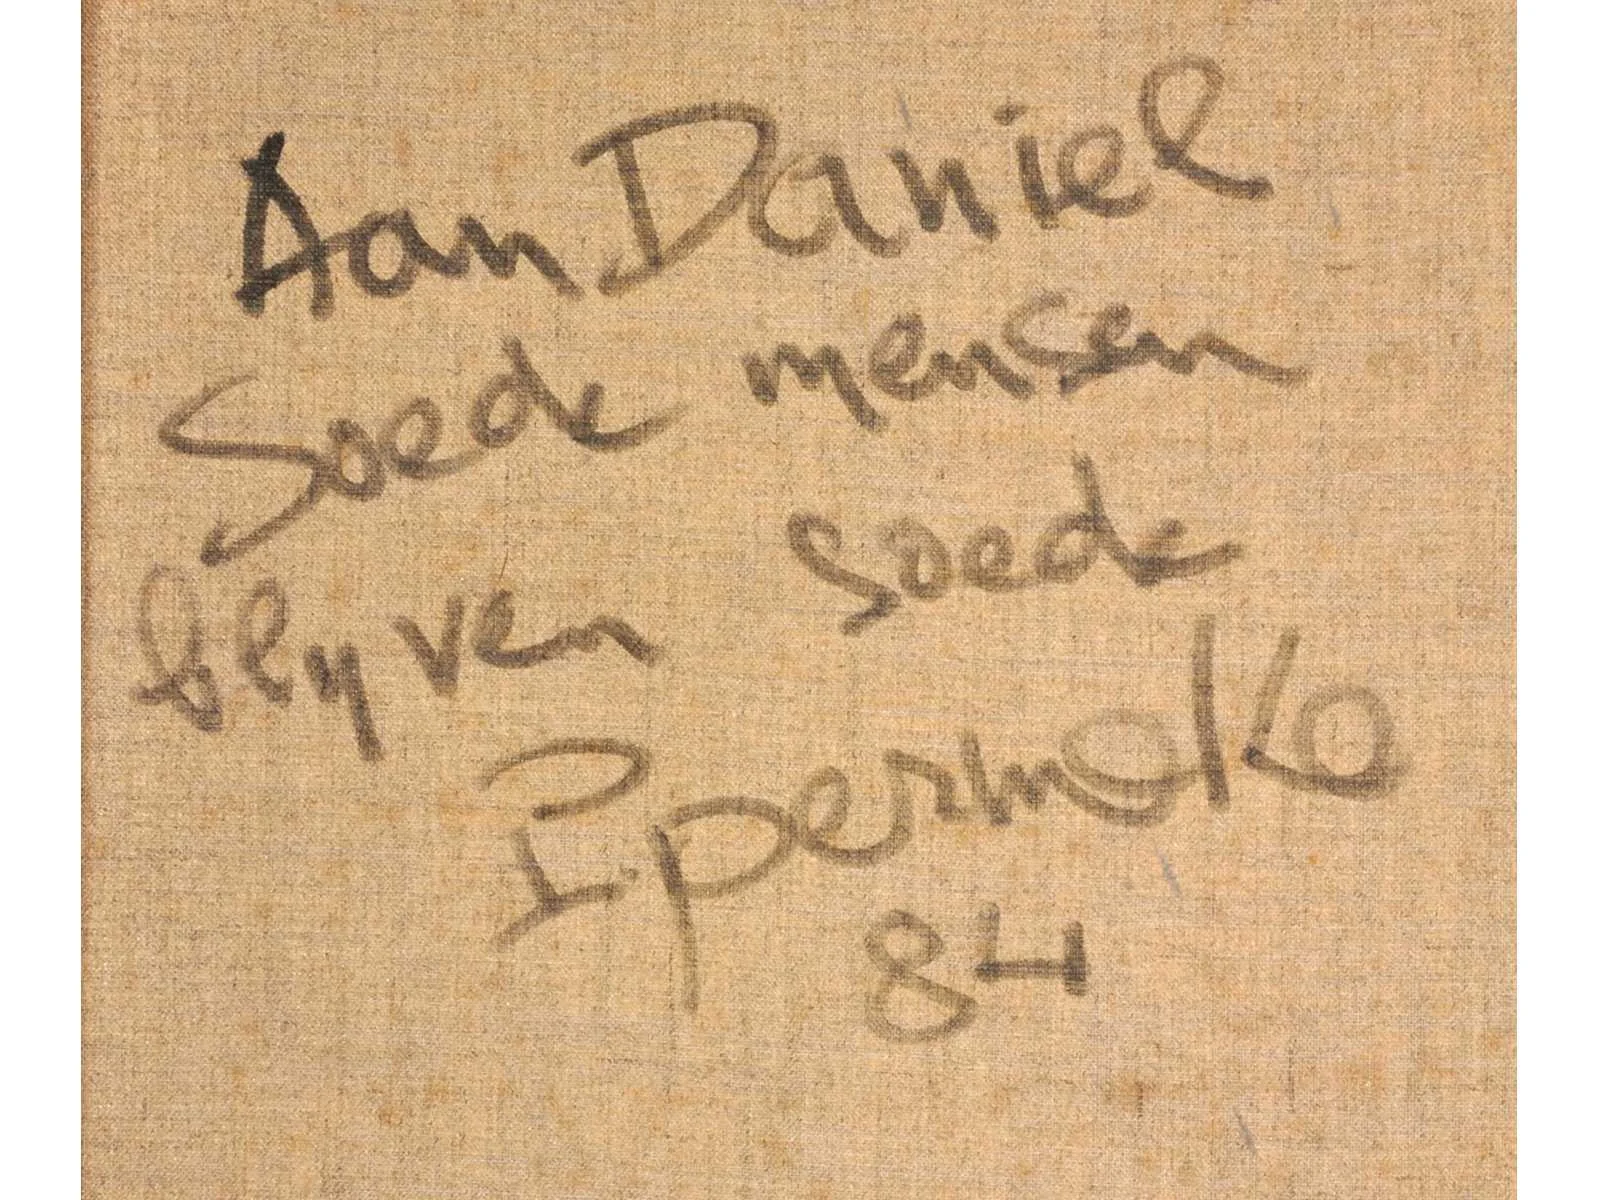 Aan Daniel
Goede mensen
blyven goede
P. permeke
84